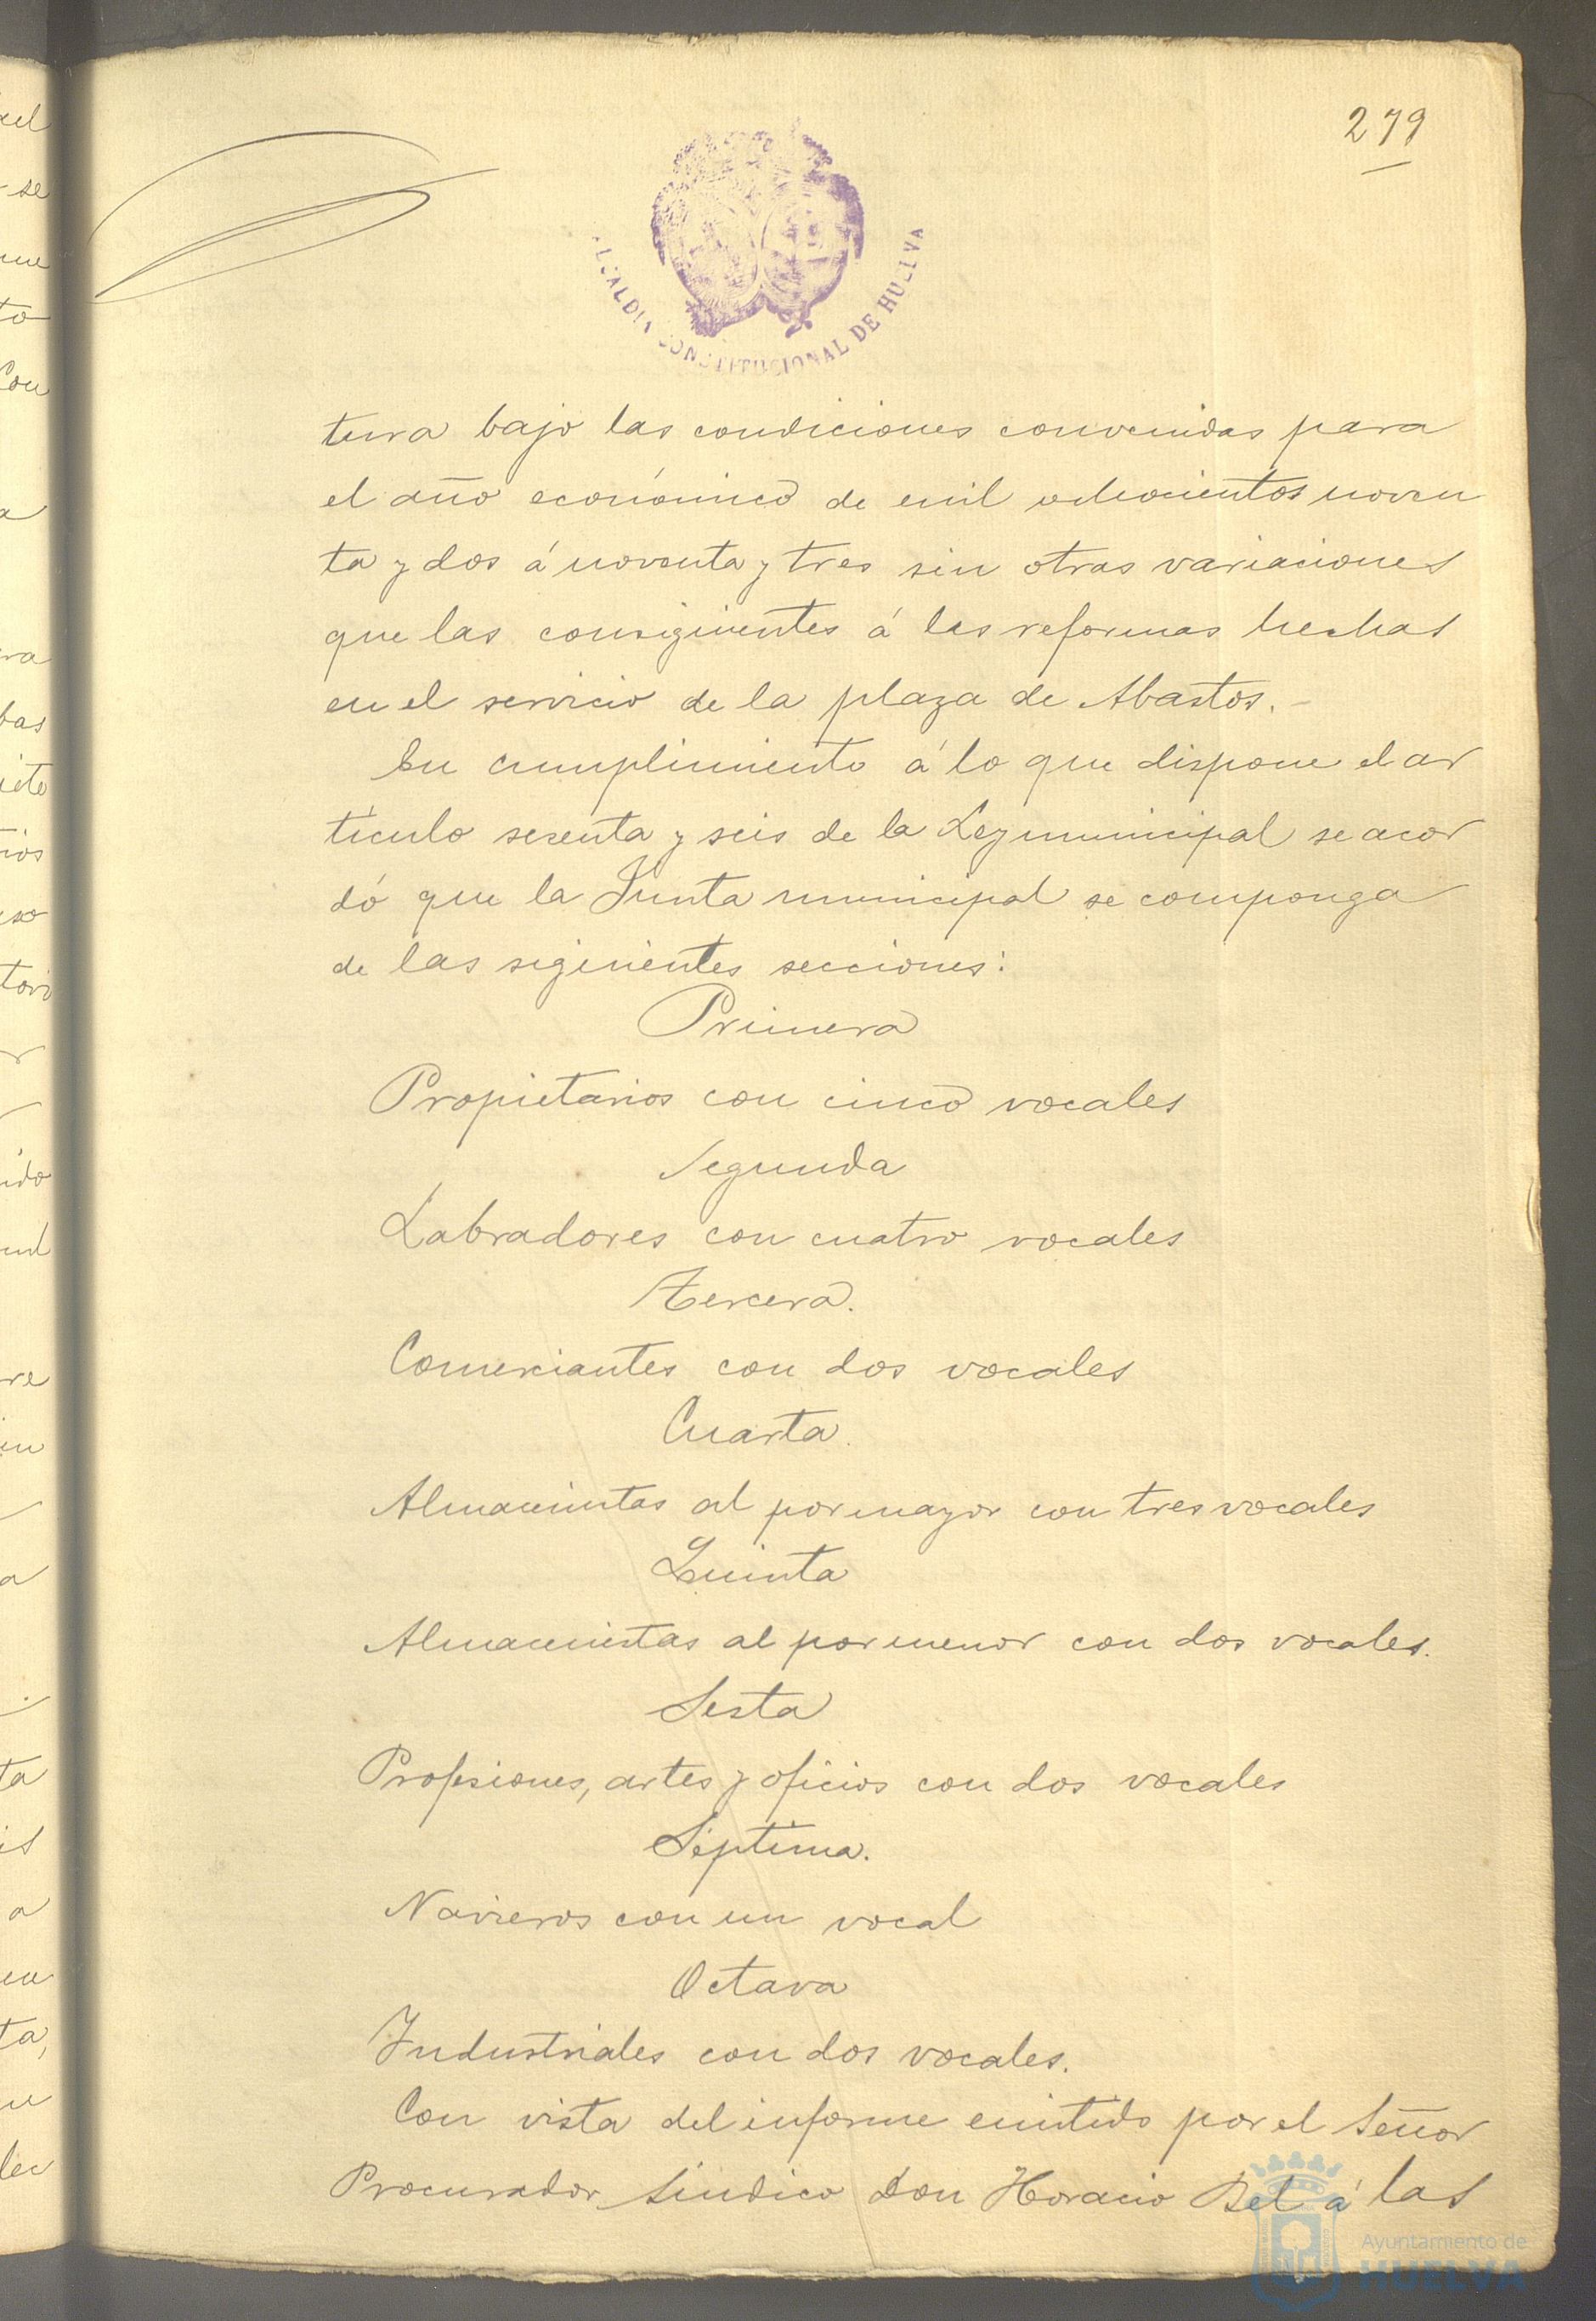 279
ALCALDIA CONSTITUCIONAL DE HUELVA
tura bajo las condiciones convenidas para
el año económico de mil ochocientos noven
ta y dos á noventa y tres sin otras variaciones
que las consiguientes á las reformas hechas
en el servicio de la plaza de Abastos.
En cumplimiento á lo que dispone el ar
tículo sesenta y seis de la Ley municipal se acor
dó que la Junta municipal se componga
de las siguientes secciones:
Primera
Propietarios con cinco vocales
Segunda
Labradores con cuatro vocales
Tercera.
Comerciantes con dos vocales
Cuarta
Almacenistas al por mayor con tres vocales
Quinta
Almacenistas al por menor con dos vocales.
Sesta
Profesiones, artes y oficios con dos vocales
Séptima.
Navieros con un vocal
Octava
Industriales con dos vocales.
Con vista del informe emitido por el Señor
Procurador Síndico Don Horacio Bel á las
Ayuntamiento de
HUELVA